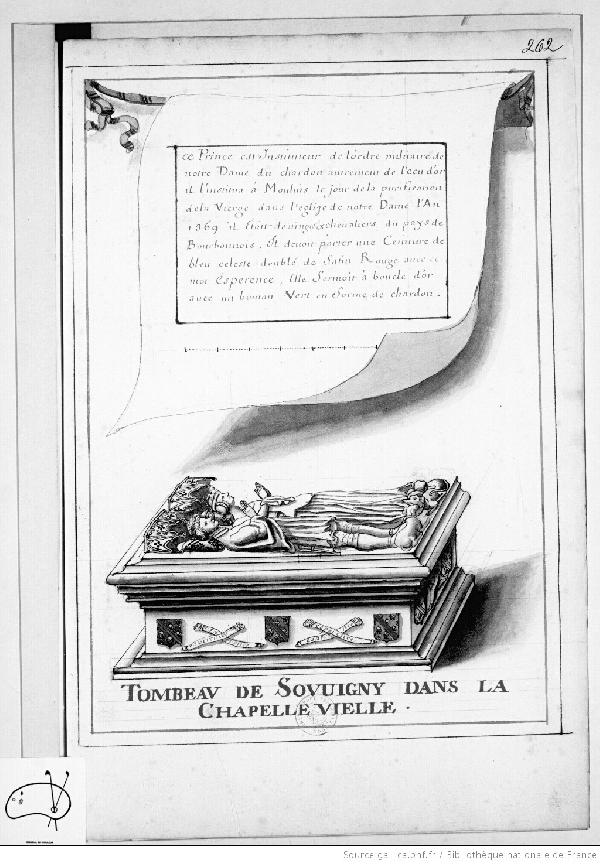 262
ce Prince est Instituteur de lordre militaire de
notre Dame du chardon autrement de l'ecu d'or
il l'institua à Moulins le jour de la purification
dela Vierge dans l'eglise de notre Dame l'An
1369 il etoit de vingt six chevaliers du pays de
Bourbonnois, Et devoit porter une Ceinture de
bleu celeste doublé de Satin Rouge avec ce
mot Esperence, Elle fermoit à boucle d'or
avec un Vert en forme de chardon.
TOMBEAV DE SOVUIGNY DANS LA
CHAPELLE VIELLE.
Source gallica.bnf.fr / Bibliothèque nationale de France